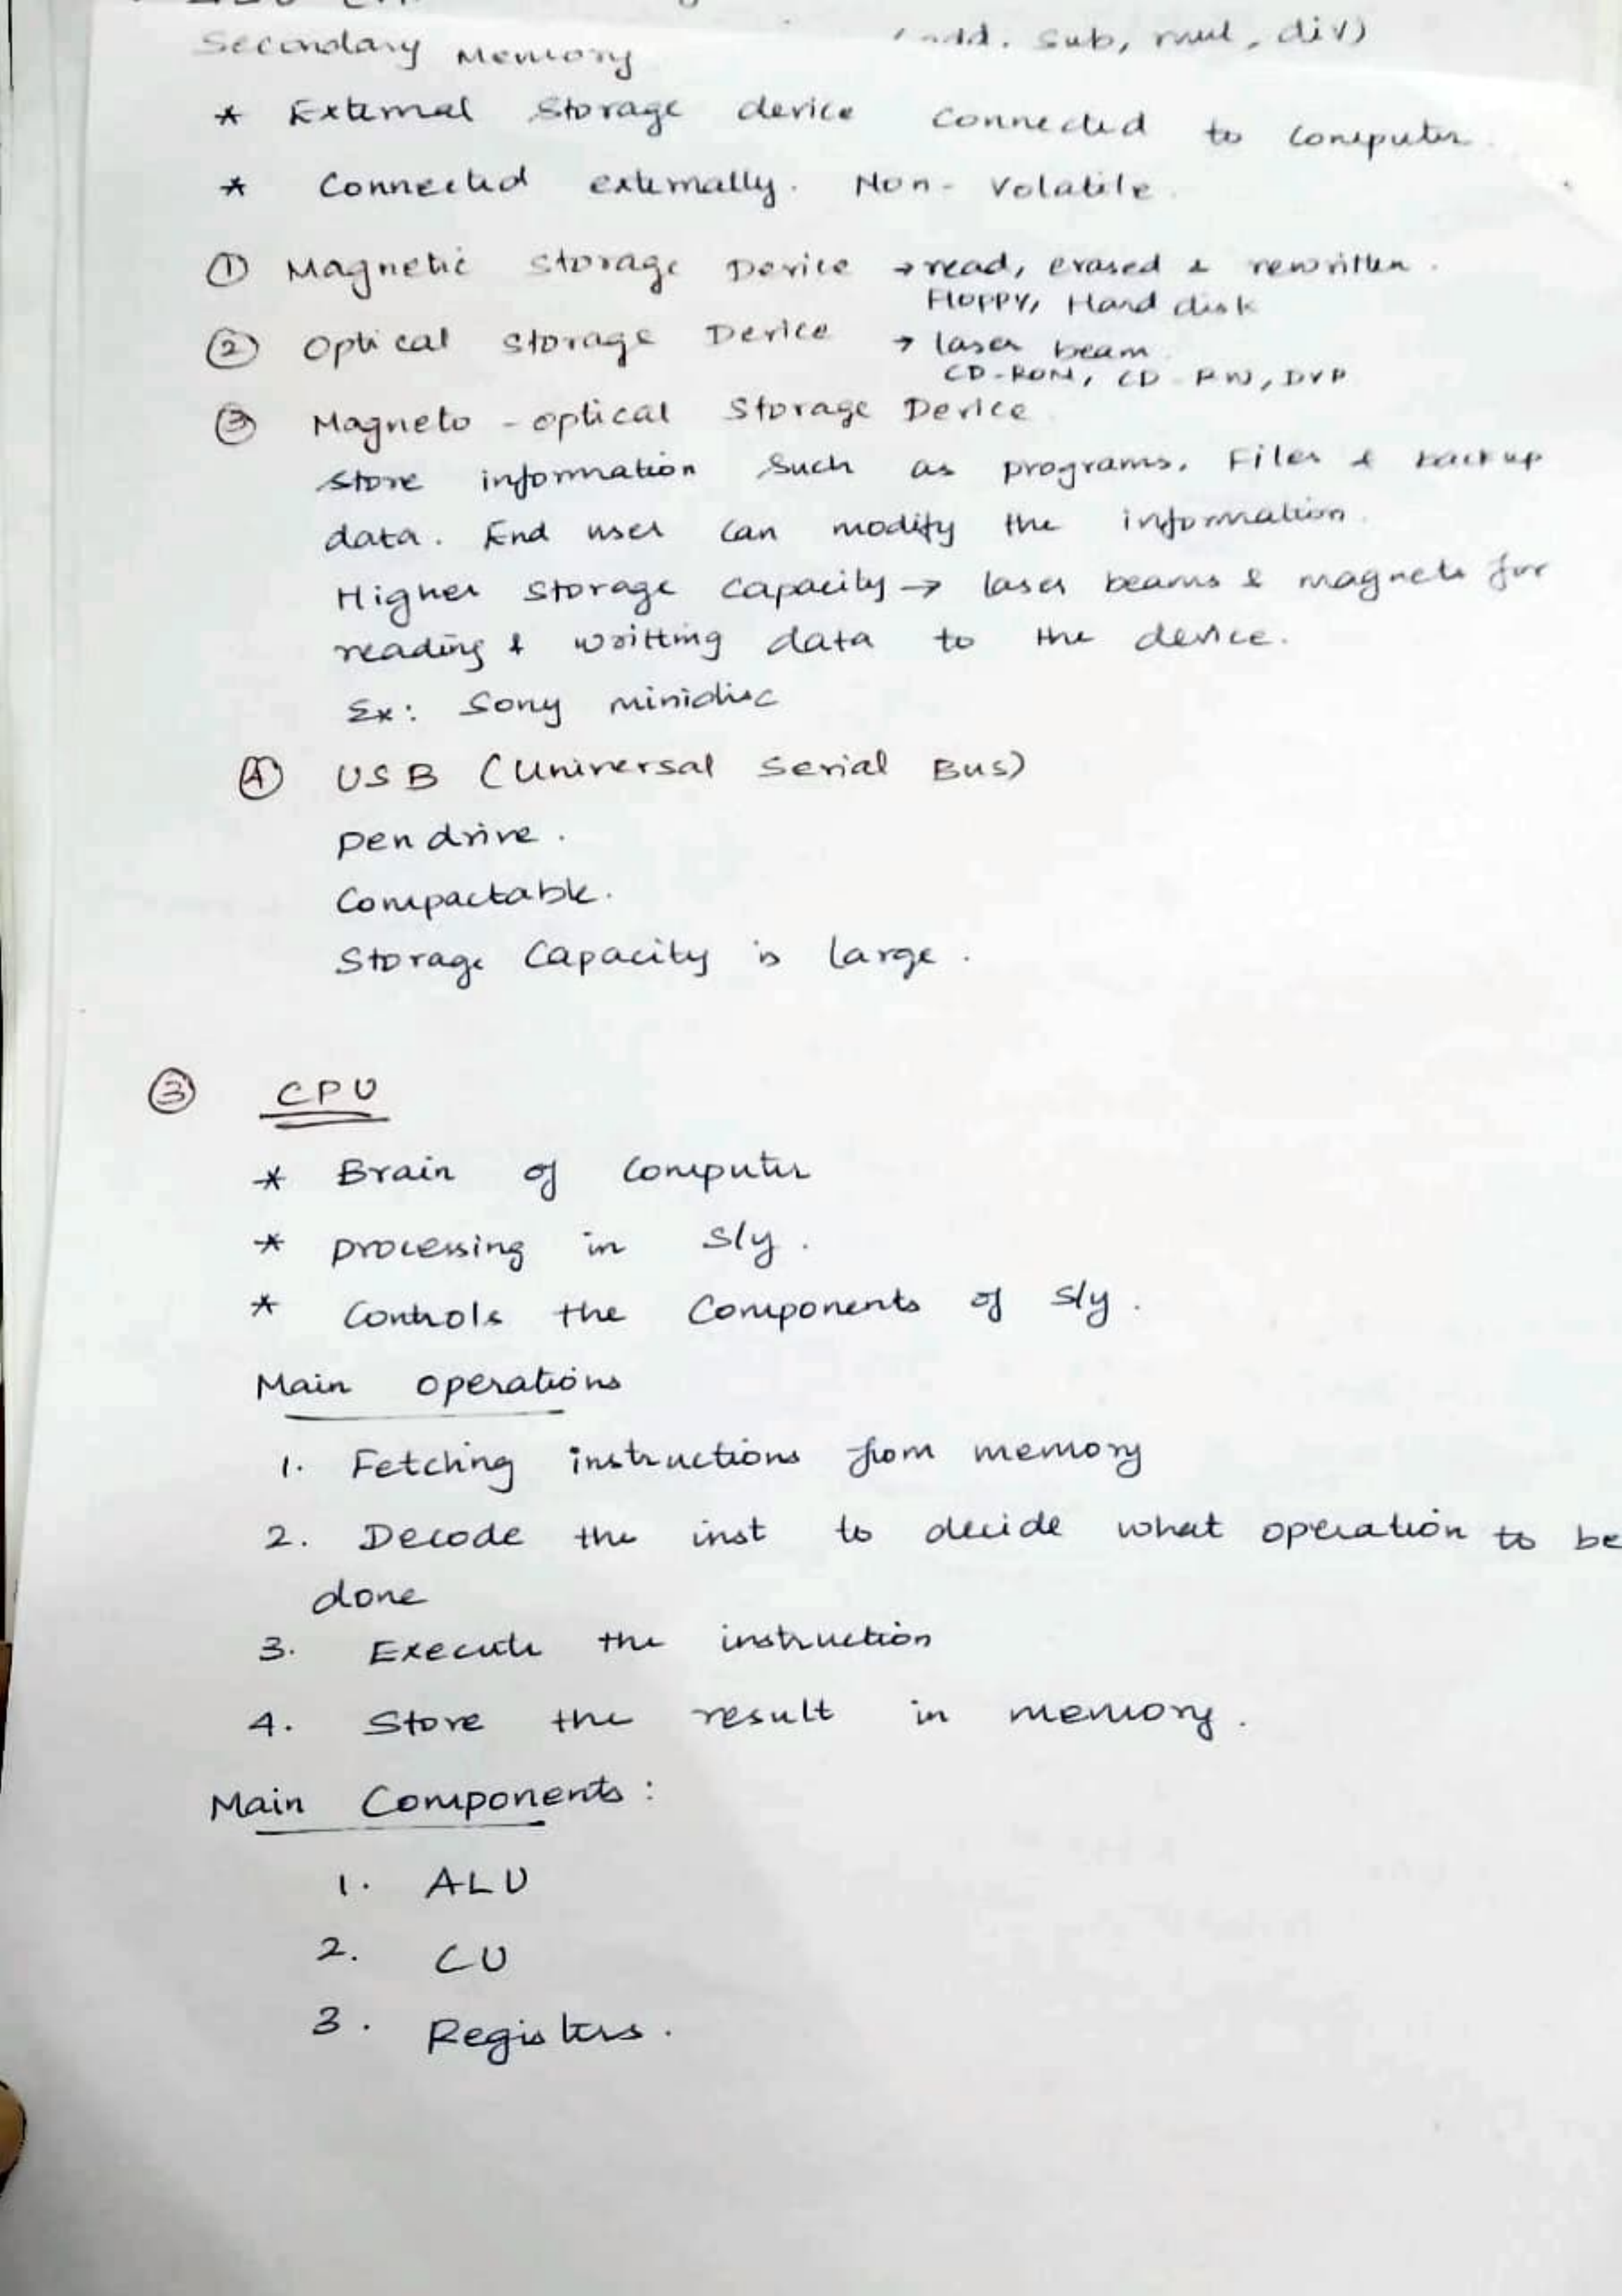 Secondary Memory
add. Sub, mul, div)
* External Storage device Connected to Computer.
* Connected externally. Non-Volatile.
① Magnetic Storage Device → read, erased & rewritten.
Floppy, Hard disk
② Optical Storage Device → laser beam.
CD-ROM, CD-RW, DVD
③ Magneto-optical Storage Device
Store information Such as programs, Files & backup
data. End user can modify the information.
Higher Storage Capacity → laser beams & magnets for
reading & writting data to the device.
Ex: Sony minidisc
④ USB (Universal Serial Bus)
Pen drive.
Compactable.
Storage Capacity is large.
③ CPU
* Brain of Computer
* processing in S/y.
* Controls the Components of S/y.
Main operations
1. Fetching instructions from memory
2. Decode the inst to decide what operation to be
done
3. Execute the instruction
4. Store the result in memory.
Main Components:
1. ALU
2. CU
3. Registers.